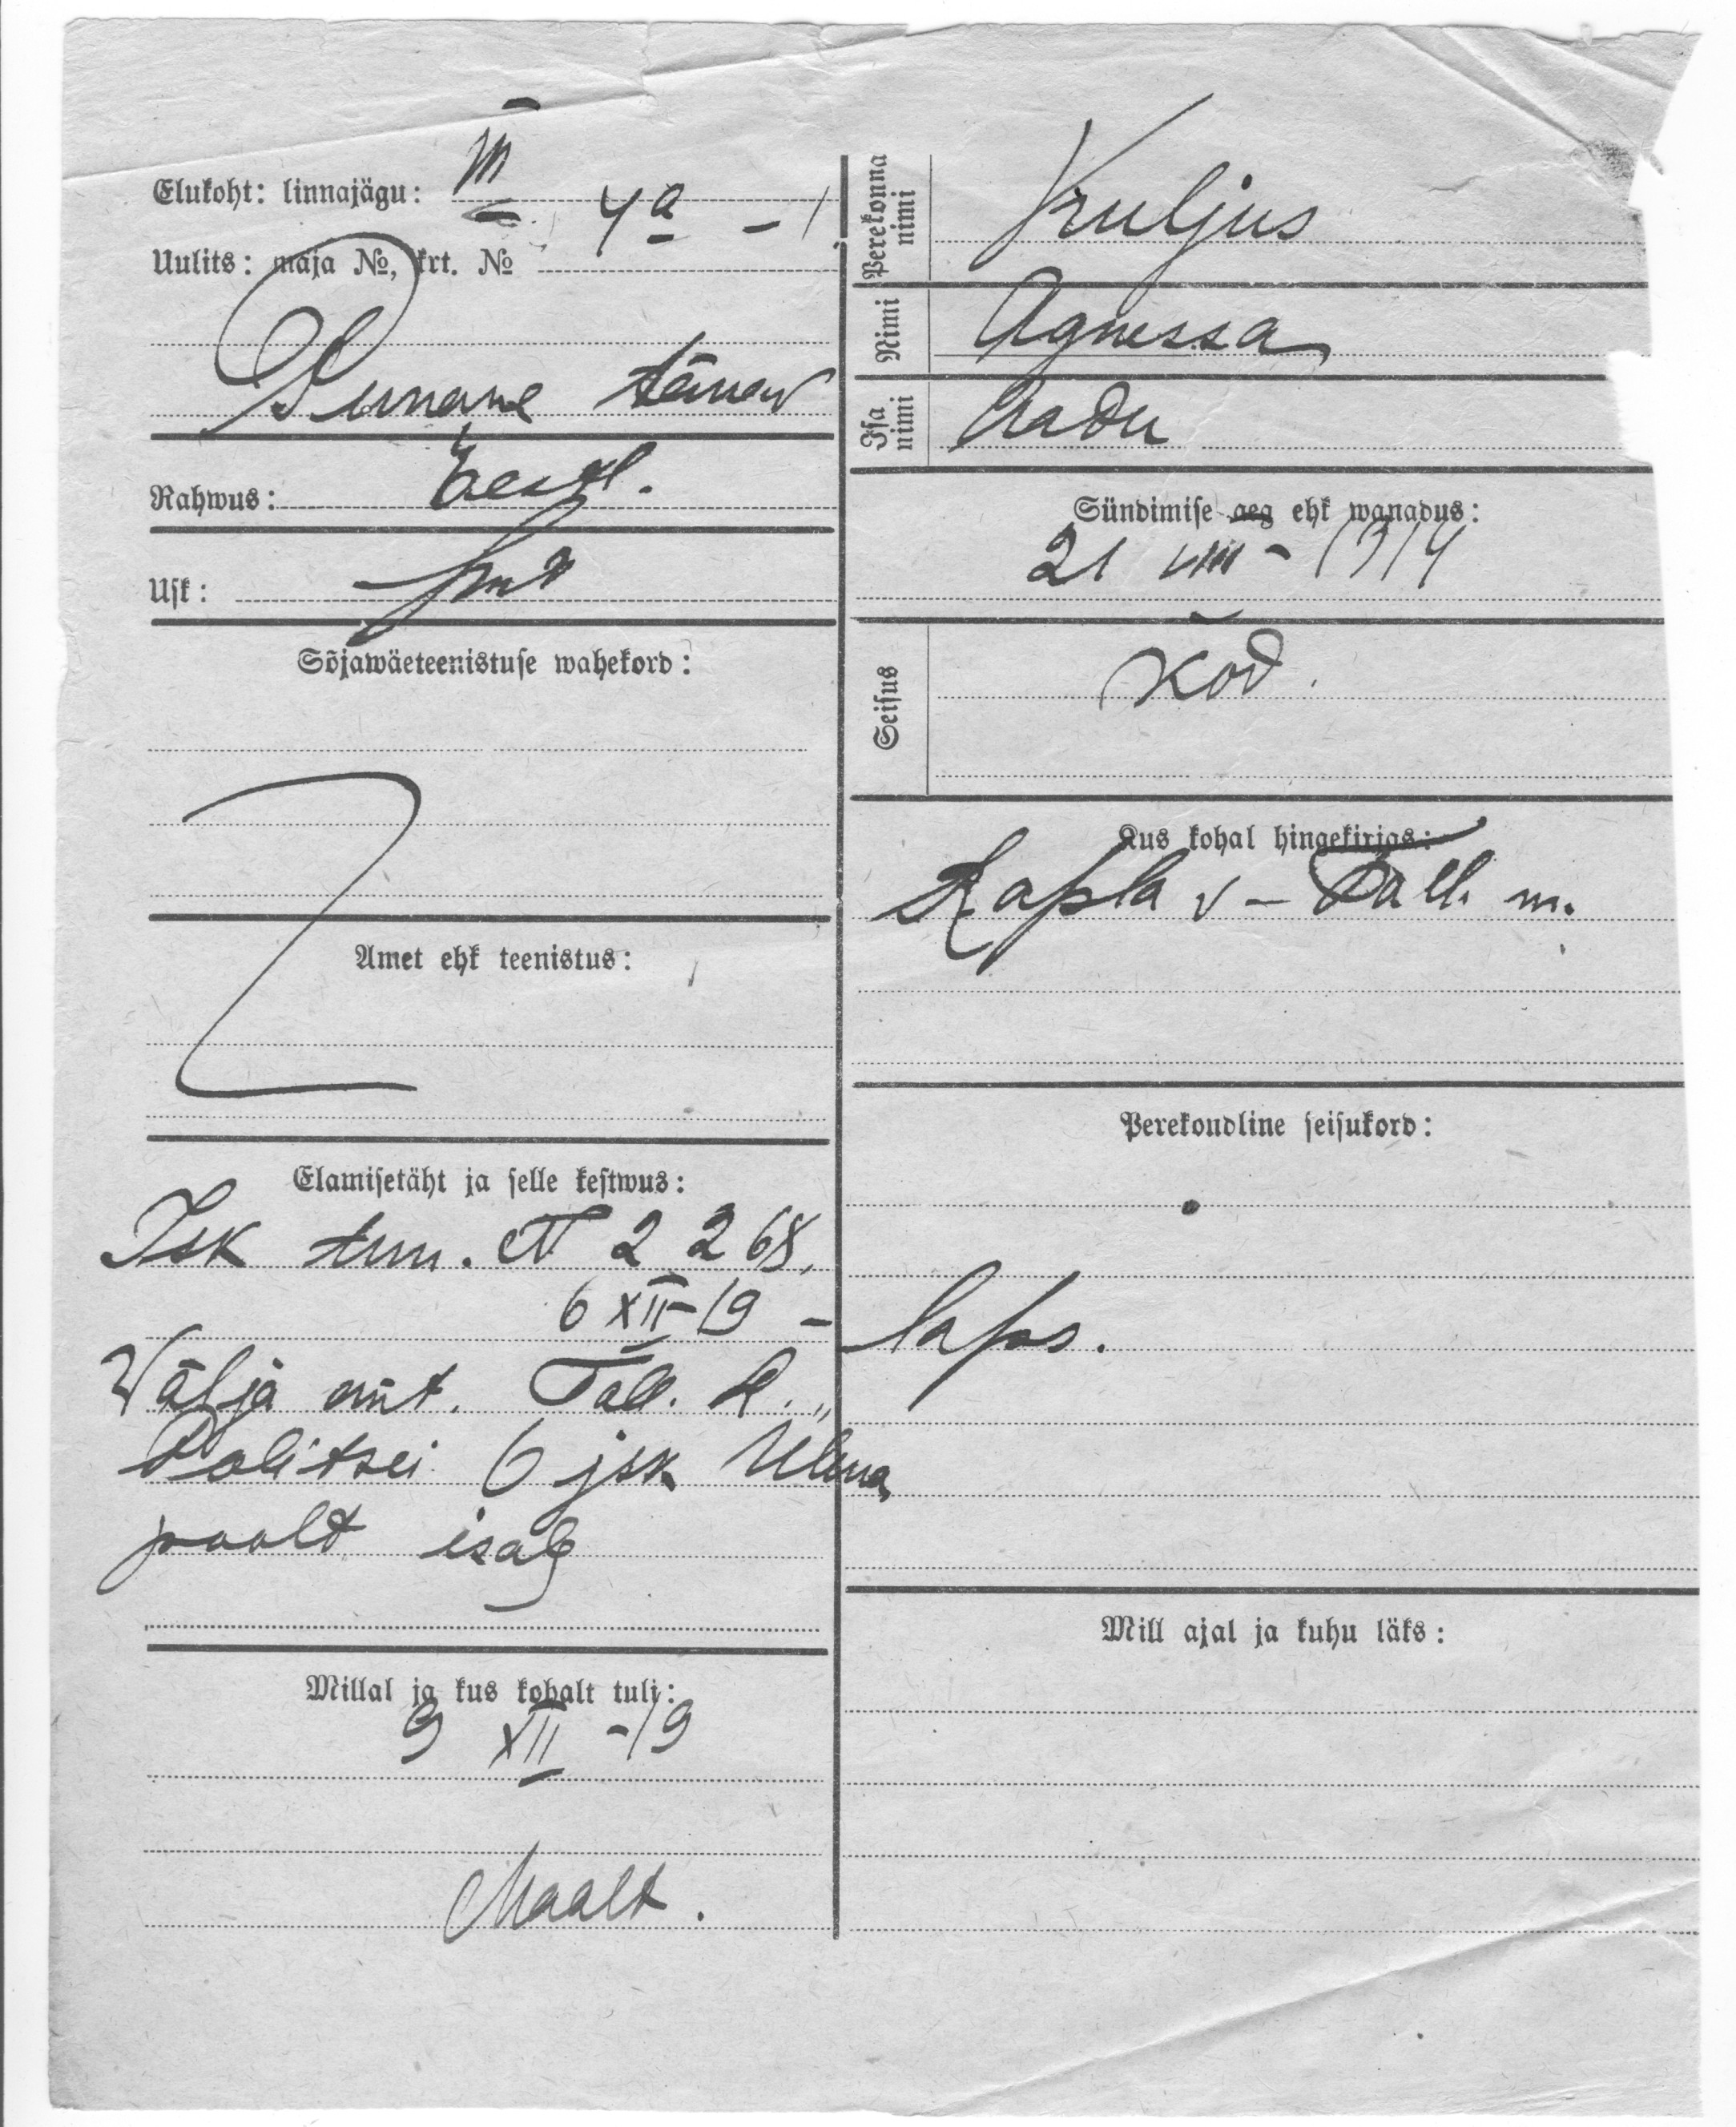 Elukoht: linnajägu: III
4a - 1
Uulits: maja №, krt. №
Punane tänaw
Rahwus: Eestl.
Usk: Lut
Sõjawäeteenistuse wahekord:
Amet ehk teenistus:
Elamisetäht ja selle kestwus:
Isk tun. N 2268,
6 XII-19 -
Wälja ant. Tall. L.
Politsei 6 jsk Ülema
poolt isale
Millal ja kus kohalt tuli:
9 XII -19
Maalt.
Perekonna nimi
Kruljus
Nimi
Agnessa
Isa nimi
Aadu
Sündimise aeg ehk wanadus:
21 VIII - 1914
Seisus
Kod.
Kus kohal hingekirjas:
Rapla v - Tall. m.
Perekondline seisukord:
laps.
Mill ajal ja kuhu läks: